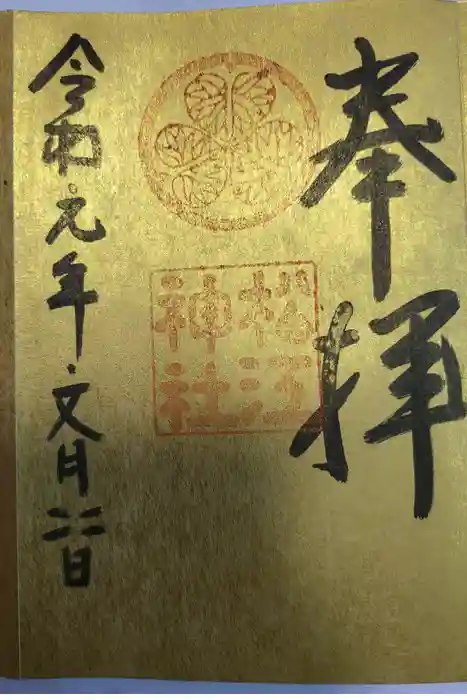 奉拝
神社
令和元年文月二二日